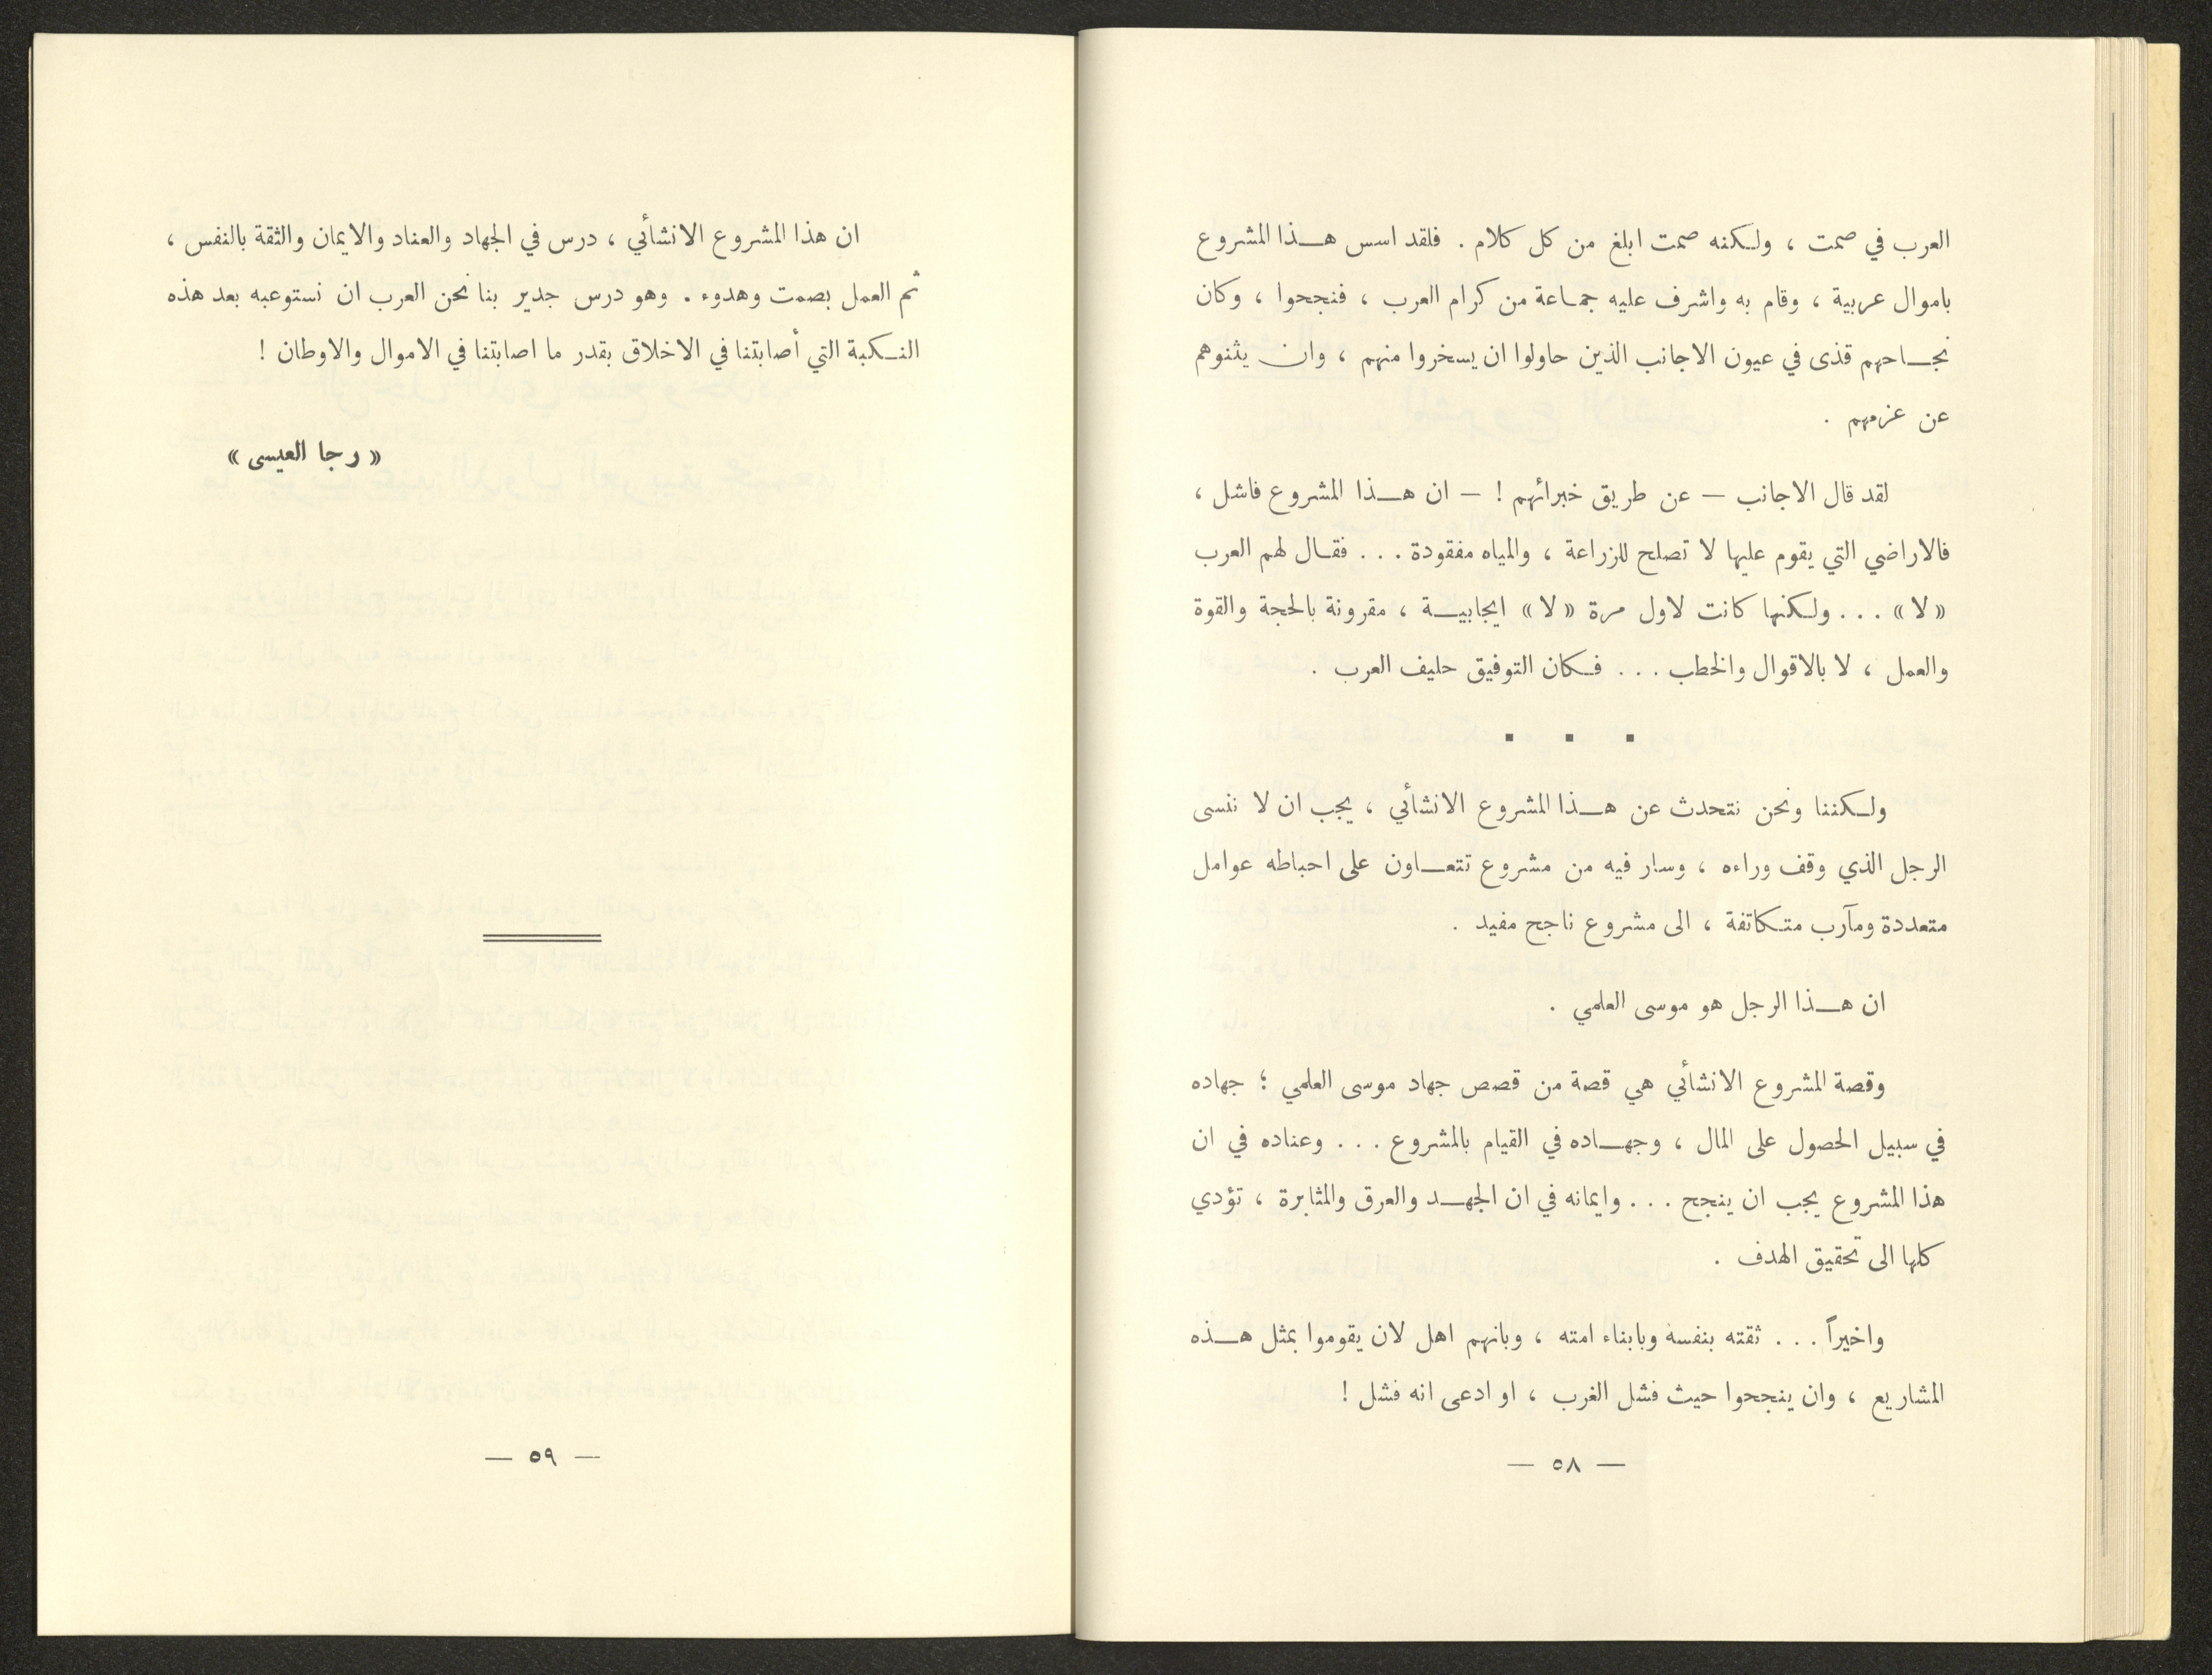 العرب في صمت ، ولكنه صمت ابلغ من كل كلام . فلقد اسس هذا المشروع
باموال عربية ، وقام به واشرف عليه جماعة من كرام العرب ، فنجحوا ، وكان
نجاحهم قذى في عيون الاجانب الذين حاولوا ان يسخروا منهم ، وان يثنوهم
عن عزمهم .
لقد قال الاجانب — عن طريق خبرائهم ! — ان هذا المشروع فاشل ،
فالاراضي التي يقوم عليها لا تصلح للزراعة ، والمياه مفقودة . . . فقال لهم العرب
« لا » . . . ولكنها كانت لاول مرة « لا » ايجابية ، مقرونة بالحجة والقوة
والعمل ، لا بالاقوال والخطب . . . فكان التوفيق حليف العرب .
▪ ▪ ▪
ولكننا ونحن نتحدث عن هذا المشروع الانشائي ، يجب ان لا ننسى
الرجل الذي وقف وراءه ، وسار فيه من مشروع تتعاون على احباطه عوامل
متعددة ومآرب متكاتفة ، الى مشروع ناجح مفيد .
ان هذا الرجل هو موسى العلمي .
وقصة المشروع الانشائي هي قصة من قصص جهاد موسى العلمي ؛ جهاده
في سبيل الحصول على المال ، وجهاده في القيام بالمشروع . . . وعناده في ان
هذا المشروع يجب ان ينجح . . . وايمانه في ان الجهد والعرق والمثابرة ، تؤدي
كلها الى تحقيق الهدف .
واخيراً . . . ثقته بنفسه وبابناء امته ، وبانهم اهل لان يقوموا بمثل هذه
المشاريع ، وان ينجحوا حيث فشل الغرب ، او ادعى انه فشل !
— ٥٨ —
ان هذا المشروع الانشائي ، درس في الجهاد والعناد والايمان والثقة بالنفس ،
ثم العمل بصمت وهدوء . وهو درس جدير بنا نحن العرب ان نستوعبه بعد هذه
النكبة التي أصابتنا في الاخلاق بقدر ما اصابتنا في الاموال والاوطان !
« رجا العيسى »
— ٥٩ —